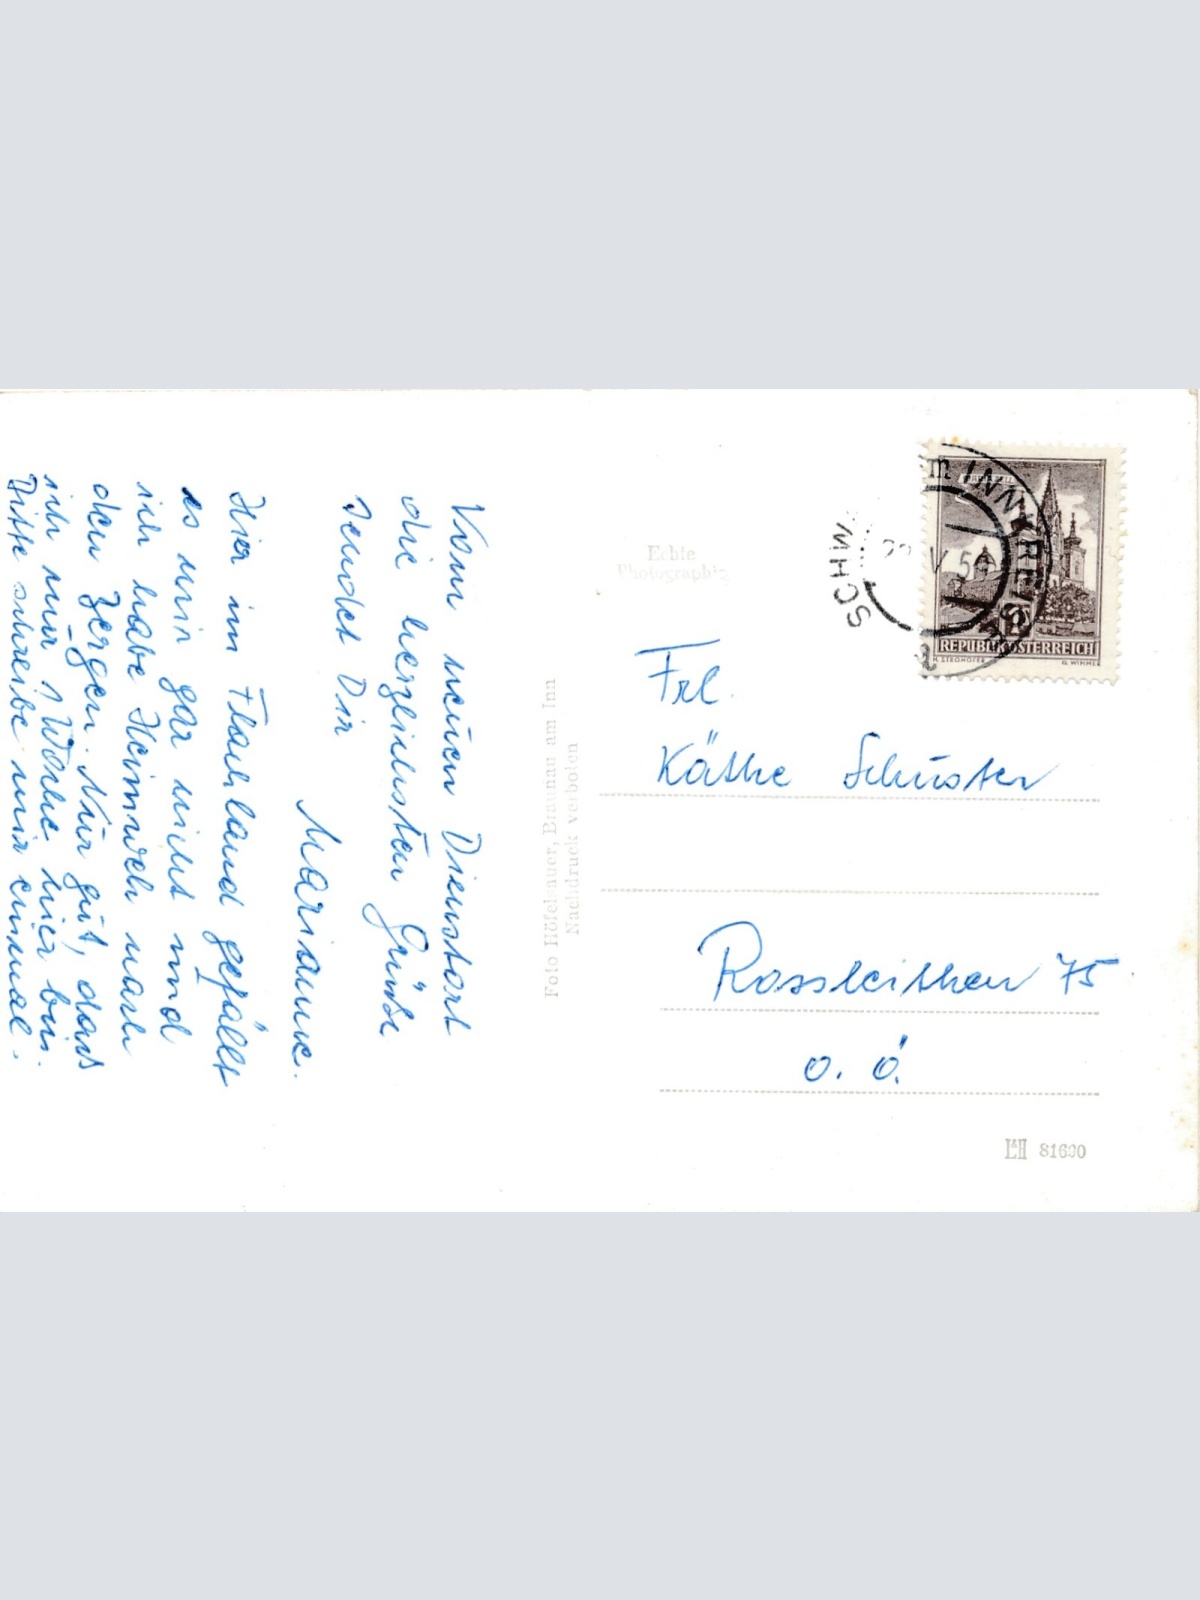 Vom neuen Dienstort
die herzlichsten Grüße
sendet Dir
Marianne.
Hier im Flachland gefällt
es mir gar nicht und
ich habe Heimweh nach
den Bergen. Nur gut, dass
ich nur 1 Woche hier bin.
Bitte schreibe mir einmal.
Foto Höfelsauer, Braunau am Inn
Nachdruck verboten
Echte
Photographie
SCH
INNKREIS
REPUBLIK ÖSTERREICH
H. STROHOFER G. WIMMER
Frl.
Käthe Schuster
Rossleithen 75
O. Ö.
L&H 81600